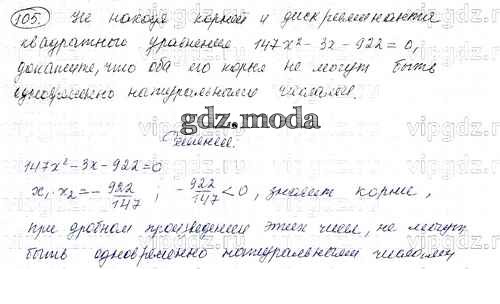 105. Не находя корней и дискриминанта
квадратного уравнения 147x² - 3x - 922 = 0,
докажите, что оба его корня не могут быть
одновременно натуральными числами.
gdz.moda
Решение.
147x² - 3x - 922 = 0
x₁·x₂ = - 922/147 ; - 922/147 < 0, значит корни,
при дробном произведении этих чисел, не могут
быть одновременно натуральными числами